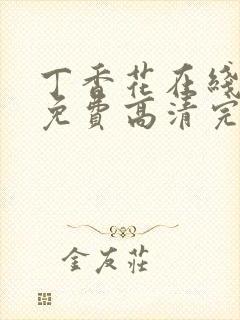 丁香花在线
免费高清完
金友莊